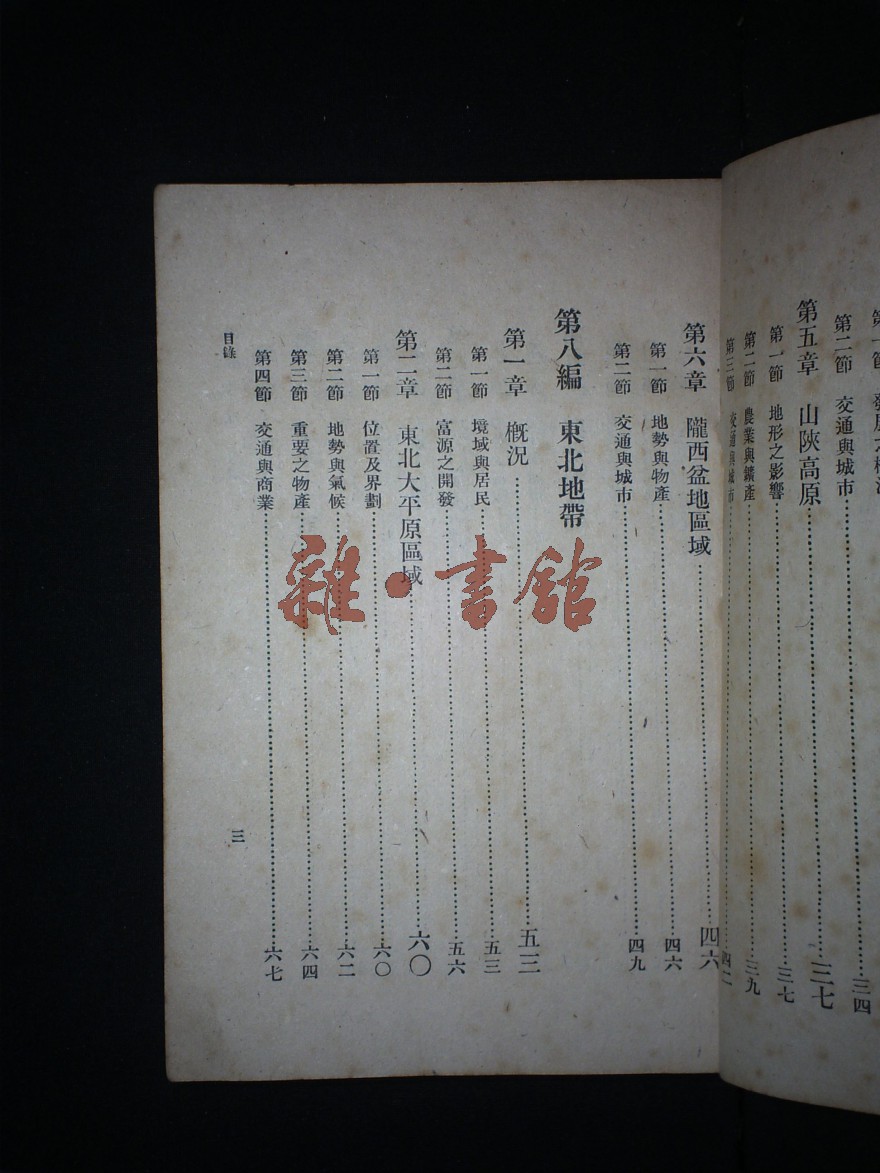 第二節　交通與城市……三四
第五章　山陝高原……三七
第一節　地形之影響……三七
第二節　農業與鑛產……三九
第三節　交通與城市……四二
第六章　隴西盆地區域……四六
第一節　地勢與物產……四六
第二節　交通與城市……四九
第八編　東北地帶
第一章　概況……五三
第一節　境域與居民……五三
第二節　富源之開發……五六
第二章　東北大平原區域……六〇
第一節　位置及界劃……六〇
第二節　地勢與氣候……六二
第三節　重要之物產……六四
第四節　交通與商業……六七
目錄
三
雜·書館